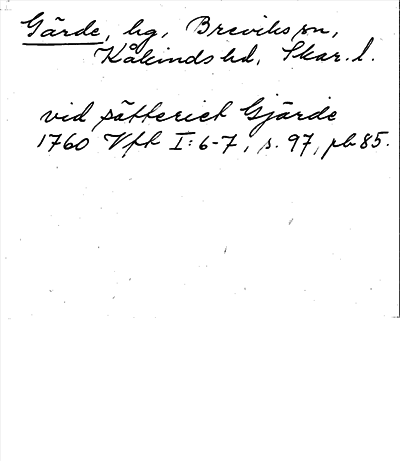 Gärde, hg, Breviks sn,
Kåkinds hd, Skar. l.
vid sätteriet Gjärde
1760 Vfh I: 6-7, s. 97, pb 85.